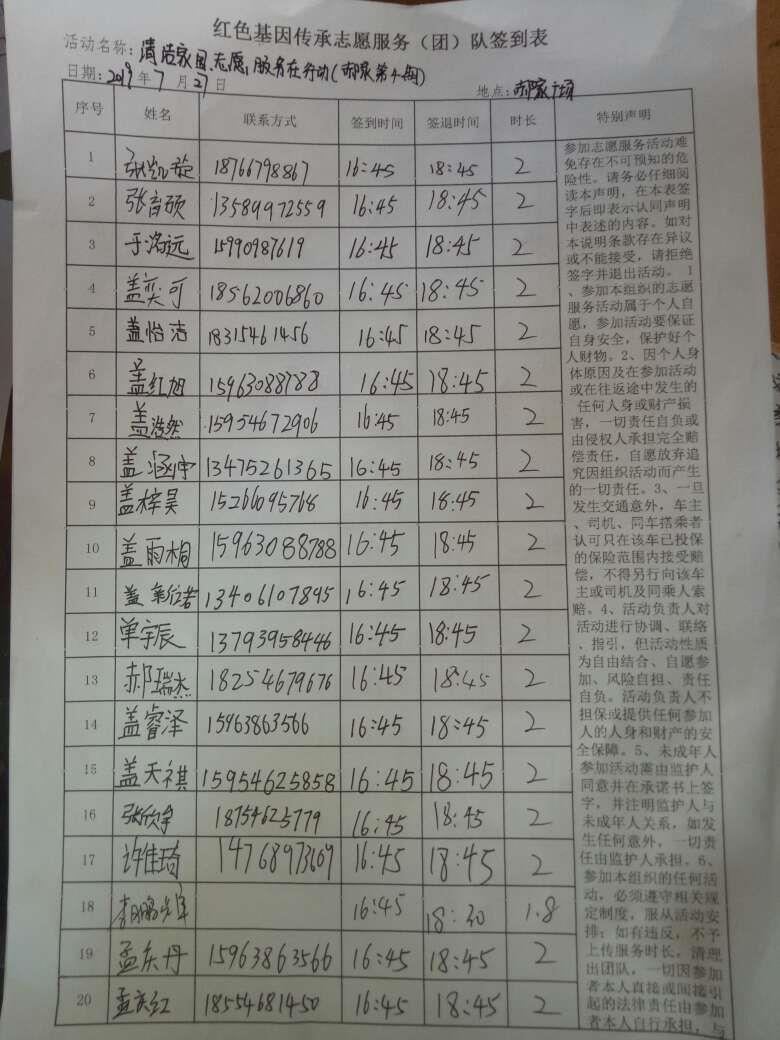 红色基因传承志愿服务（团）队签到表
活动名称：清洁家园志愿服务在行动(郝家第4期)
日期：2019年7月27日 地点：郝家广场
序号 姓名 联系方式 签到时间 签退时间 时长 特别声明
1 张凯旋 18766798867 16:45 18:45 2
2 张育硕 13589972559 16:45 18:45 2
3 于洺远 15990987619 16:45 18:45 2
4 盖奕可 18562006860 16:45 18:45 2
5 盖怡洁 18315461456 16:45 18:45 2
6 盖红旭 15963088788 16:45 18:45 2
7 盖浩然 15954672906 16:45 18:45 2
8 盖涵宇 13475261365 16:45 18:45 2
9 盖梓昊 15266095768 16:45 18:45 2
10 盖雨桐 15963088788 16:45 18:45 2
11 盖 13406107895 16:45 18:45 2
12 单宇辰 13793958446 16:45 18:45 2
13 郝瑞杰 18254679676 16:45 18:45 2
14 盖睿泽 15963863566 16:45 18:45 2
15 盖天祺 15954625858 16:45 18:45 2
16 张欣宇 18754623779 16:45 18:45 2
17 许佳琦 14768973609 16:45 18:45 2
18 李鹏 16:45 18:30 1.8
19 孟庆丹 15963863566 16:45 18:45 2
20 孟庆红 18554681450 16:45 18:45 2
参加志愿服务活动难
免存在不可预知的危
险性。请务必仔细阅
读本声明，在本表签
字后即表示认同声明
中表述的内容。如对
本说明条款存在异议
或不能接受，请拒绝
签字并退出活动。 1
、参加本组织的志愿
服务活动属于个人自
愿，参加活动要保证
自身安全，保护好个
人财物。2、因个人身
体原因及在参加活动
或在往返途中发生的
任何人身或财产损
害，一切责任自负或
由侵权人承担完全赔
偿责任，自愿放弃追
究因组织活动而产生
的一切责任。3、一旦
发生交通意外，车主
、司机、同车搭乘者
认可只在该车已投保
的保险范围内接受赔
偿，不得另行向该车
主或司机及同乘人索
赔。4、活动负责人对
活动进行协调、联络
、指引，但活动性质
为自由结合、自愿参
加、风险自担、责任
自负。活动负责人不
担保或提供任何参加
人的人身和财产的安
全保障。5、未成年人
参加活动需由监护人
同意并在承诺书上签
字，并注明监护人与
未成年人关系，如发
生任何意外，一切责
任由监护人承担。6、
参加本组织的任何活
动，必须遵守相关规
定制度，服从活动安
排；如有违反，不予
上传服务时长，清理
出团队，一切因参加
者本人直接或间接引
起的法律责任由参加
者本人自行承担，与